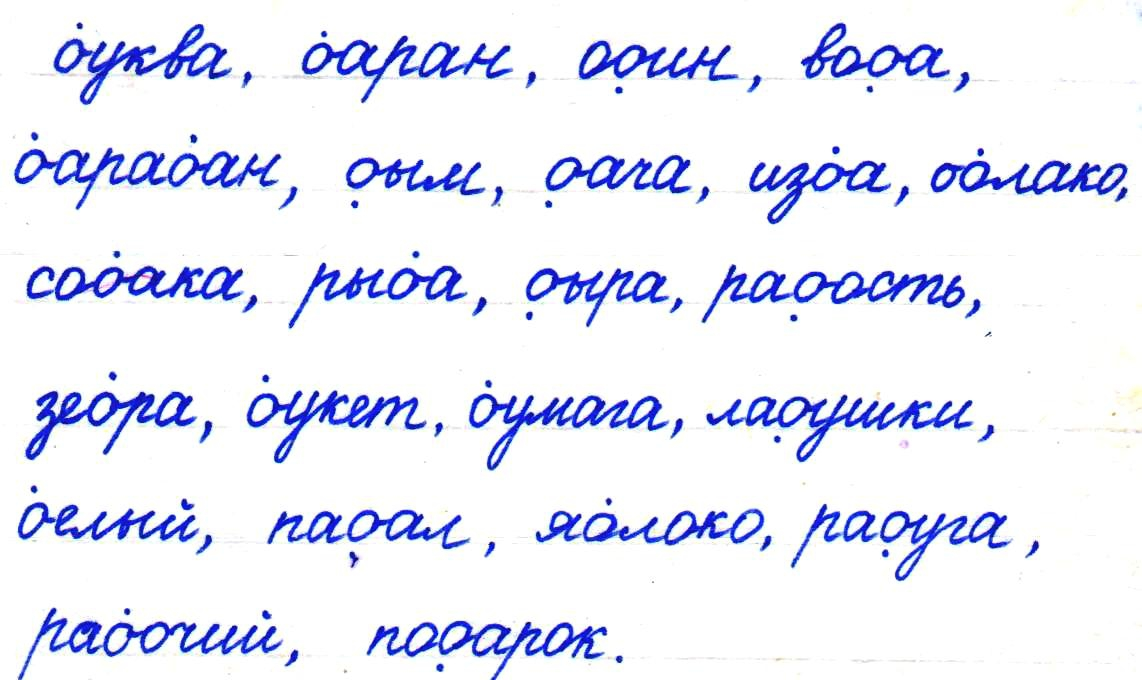 о̇уква, о̇аран, оо̣ин, воо̣а,
о̇арао̇ан, о̣ым, о̣ача, изо̇а, оо̇лако,
соо̇ака, рыо̇а, о̣ыра, рао̣ость,
зео̇ра, о̇укет, о̇умага, лао̣ушки,
о̇елый, пао̣ал, яо̇локо, рао̣уга,
рао̇очий, поо̣арок.